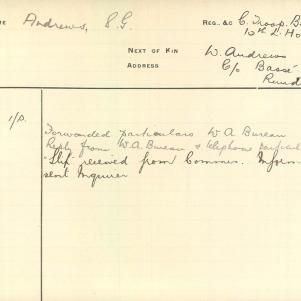 ME Andrews, S. G. REG. &c C. Troop. B
10th L. Ho
NEXT OF KIN W. Andrews
ADDRESS C/o Bassé
Rund
1/5.
Forwarded particulars W A Bureau
Reply from W. A. Bureau & telephone
"Slip" received from Commns. Inform
sent Inquirer